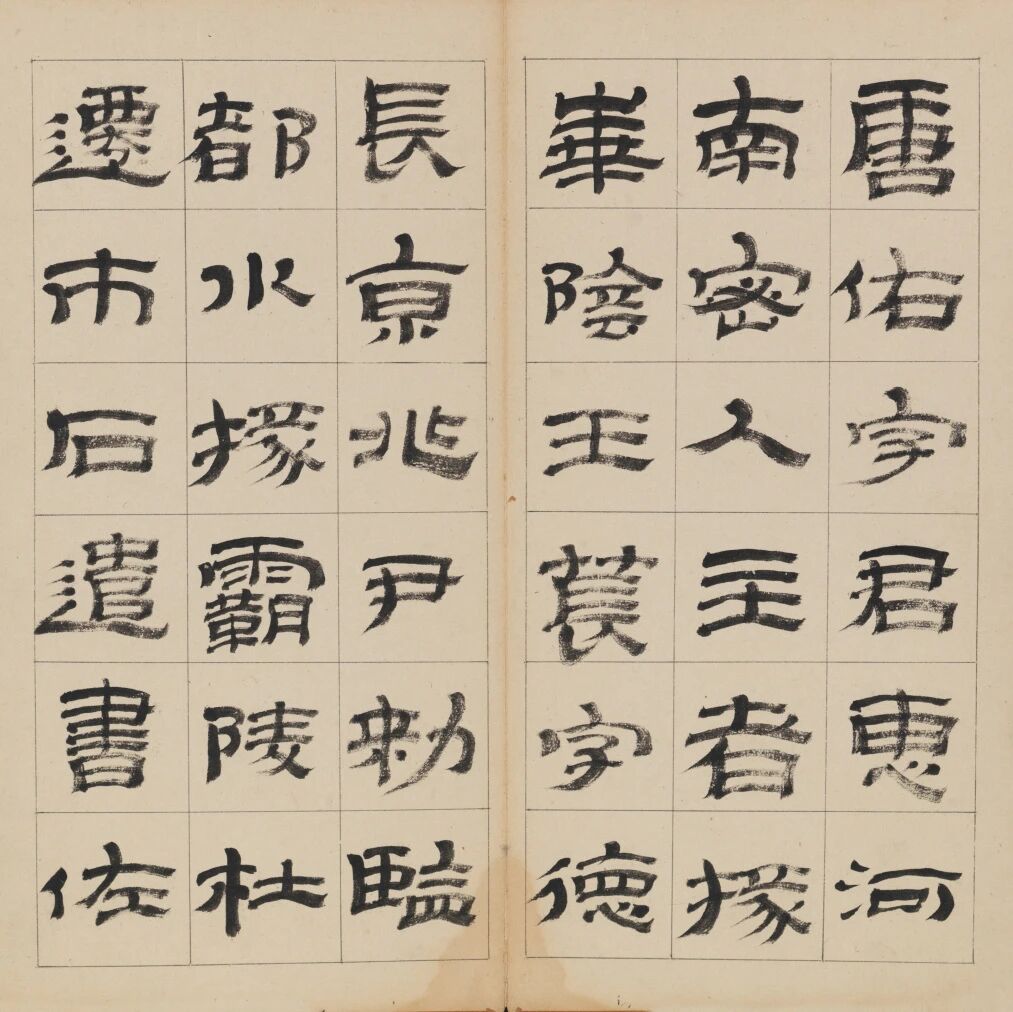 唐佑字君惠河
南密人主者掾
華陰王萇字德
長京兆尹勑監
都水掾霸陵杜
遷市石遣書佐